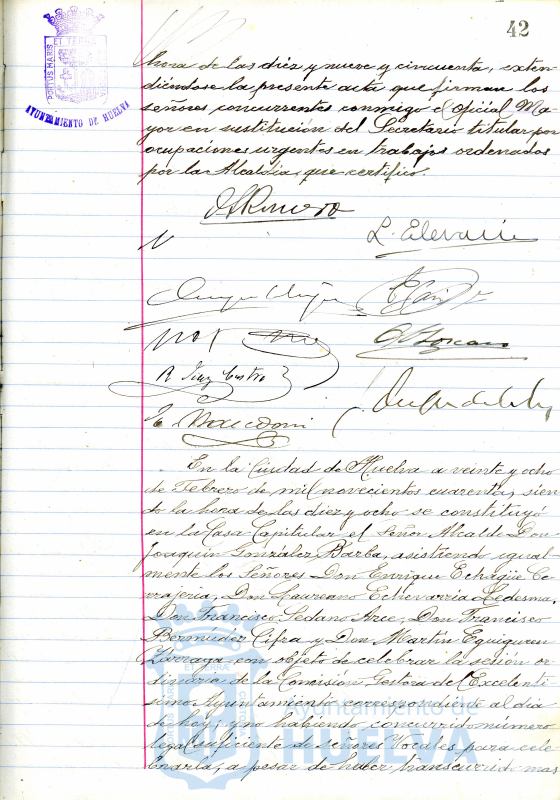 42
PORTUS MARIS
AYUNTAMIENTO DE HUELVA
hora de las diez y nueve y cincuenta, exten-
diéndose la presente acta que firman los
señores concurrentes conmigo el oficial Ma-
yor en sustitución del Secretario titular por
ocupaciones urgentes en trabajos ordenados
por la Alcaldía, que certifico.
En la Ciudad de Huelva a veinte y ocho
de Febrero de mil novecientos cuarenta, sien-
do la hora de las diez y ocho se constituyó
en la Casa Capitular el Señor Alcalde Don
Joaquín González Barba, asistiendo igual-
mente los Señores Don Enrique Echagüe Ce-
rrajería, Don Laureano Echevarría Ledesma,
Don Francisco Sedano Arce, Don Francisco
Bermúdez Cifra y Don Martín Eguiguren
Zárraga, con objeto de celebrar la sesión or-
dinaria de la Comisión Gestora del Excelentí-
simo Ayuntamiento correspondiente al día
de hoy; y no habiendo concurrido número
legal suficiente de señores Vocales para cele-
brarla, a pesar de haber transcurrido mas
Ayuntamiento de
HUELVA